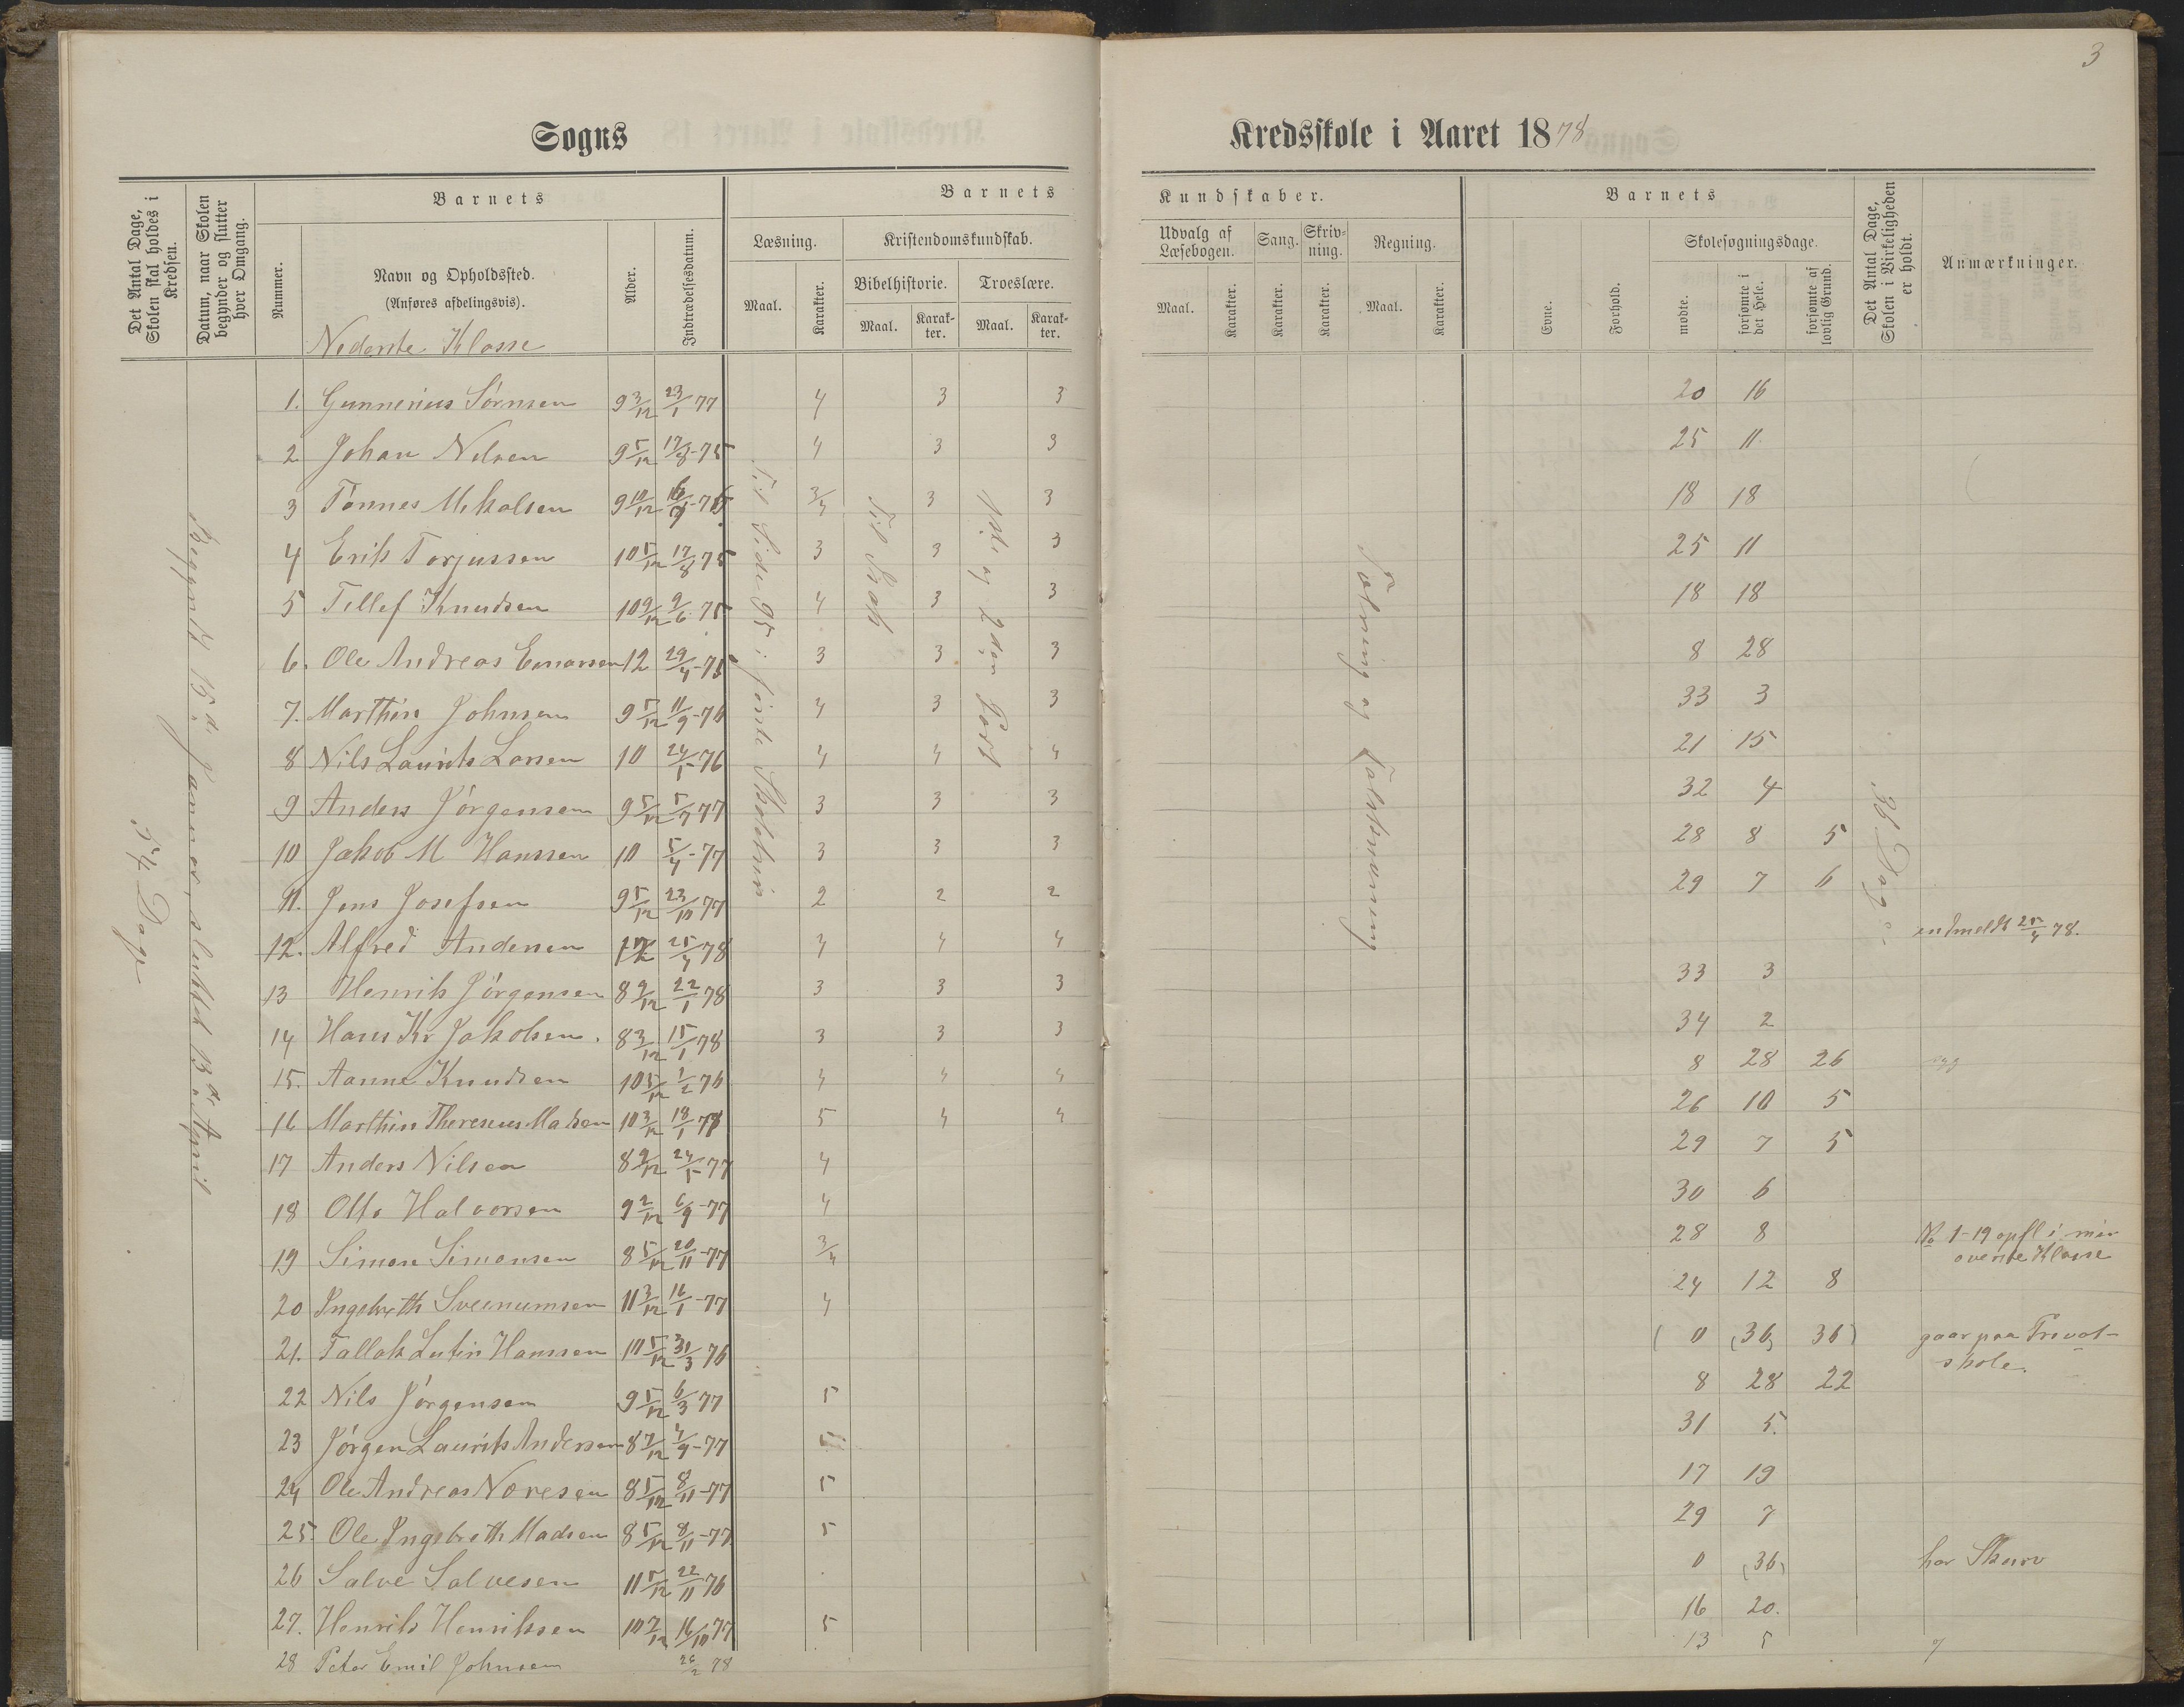 3
Sogns
Kredsskole i Aaret 1878
Det Antal Dage, Skolen skal holdes i Kredsen.
Datum, naar Skolen begynder og slutter hver Omgang.
Barnets
Nummer.
Navn og Opholdssted.
(Anføres afdelingsvis).
Nederste Klasse
Alder.
Indtrædelsesdatum.
Barnets
Læsning.
Kristendomskundskab.
Maal.
Karakter.
Bibelhistorie.
Troeslære.
Maal.
Karakter.
Maal.
Karakter.
Kundskaber.
Udvalg af Læsebogen.
Sang.
Skrivning.
Regning.
Maal.
Karakter.
Karakter.
Karakter.
Maal.
Karakter.
Barnets
Evne.
Forhold.
Skolesøgningsdage.
mødte.
forsømte i det Hele.
forsømte af lovlig Grund.
Det Antal Dage, Skolen i Virkeligheden er holdt.
Anmærkninger.
54 Dage
Begyndt 15d. Januar, sluttet 13de April
Til Side 95 i første Skoletrin
Til Isak
1ste og 2den Part
Tælning og Talskrivning
36 Dage
1. Gunnerius Sørnsen 9 3/12 23/1 77 4 3 3 20 16
2 Johan Nilsen 9 5/12 17/8-75 4 3 3 25 11
3 Tønnes Mikalsen 9 10/12 3/4 3 3 18 18
4 Erik Torjussen 10 5/12 17/8 75 3 3 3 25 11
5 Tellef Knudsen 10 9/12 9/6 75 4 3 3 18 18
6. Ole Andreas Einarsen 12 29/4-75 3 3 3 8 28
7. Marthin Johnsen 9 5/12 11/9-76 4 3 3 33 3
8 Nils Laurits Larsen 10 24/5-76 4 4 4 21 15
9 Anders Jørgensen 9 5/12 5/7 77 3 3 3 32 4
10 Jakob M Hanssen 10 5/4-77 3 3 3 28 8 5
11. Jens Josefsen 9 5/12 23/10 77 2 2 2 29 7 6
12. Alfred Andersen 25/4 78 4 4 4 indmeldt 25/4 78.
13 Henrik Jørgensen 8 9/12 22/1 78 3 3 3 33 3
14 Hans Kr Jakobsen. 8 3/12 15/1 78 3 3 3 34 2
15. Aanne Knudsen 10 5/12 1/2 76 4 4 4 8 28 26
16 Marthin Theresius Madsen 10 3/12 18/1 5 4 4 26 10 5
17 Anders Nilsen 8 9/12 24/5-77 4 29 7 5
18 Otto Halvorsen 9 2/12 6/9-77 4 30 6
19 Simon Simonsen 8 5/12 20/11-77 3/4 28 8 No 1-19 opfl i min
øverste Klasse
20 Ingebreth Sveenumsen 11 3/12 16/1-77 4 24 12 8
21. Tallak Lutin Hanssen 10 5/12 31/3 76 (0 (36) 36) gaar paa Privat-
skole.
22 Nils Jørgensen 9 5/12 6/3 77 5 8 28 22
23 Jørgen Laurits Andersen 8 7/12 4/9-77 5 31 5.
24 Ole Andreas Noresen 8 5/12 8/11-77 5 17 19
25. Ole Ingebreth Madsen 8 5/12 8/11-77. 5 29 7
26 Salve Salvesen 11 5/12 22/11 76 0 (36) har Skurv
27. Henrik Henriksen 10 7/12 16/10 77 5 16 20.
28 Peter Emil Johnsen 26/2 78 13 5 7